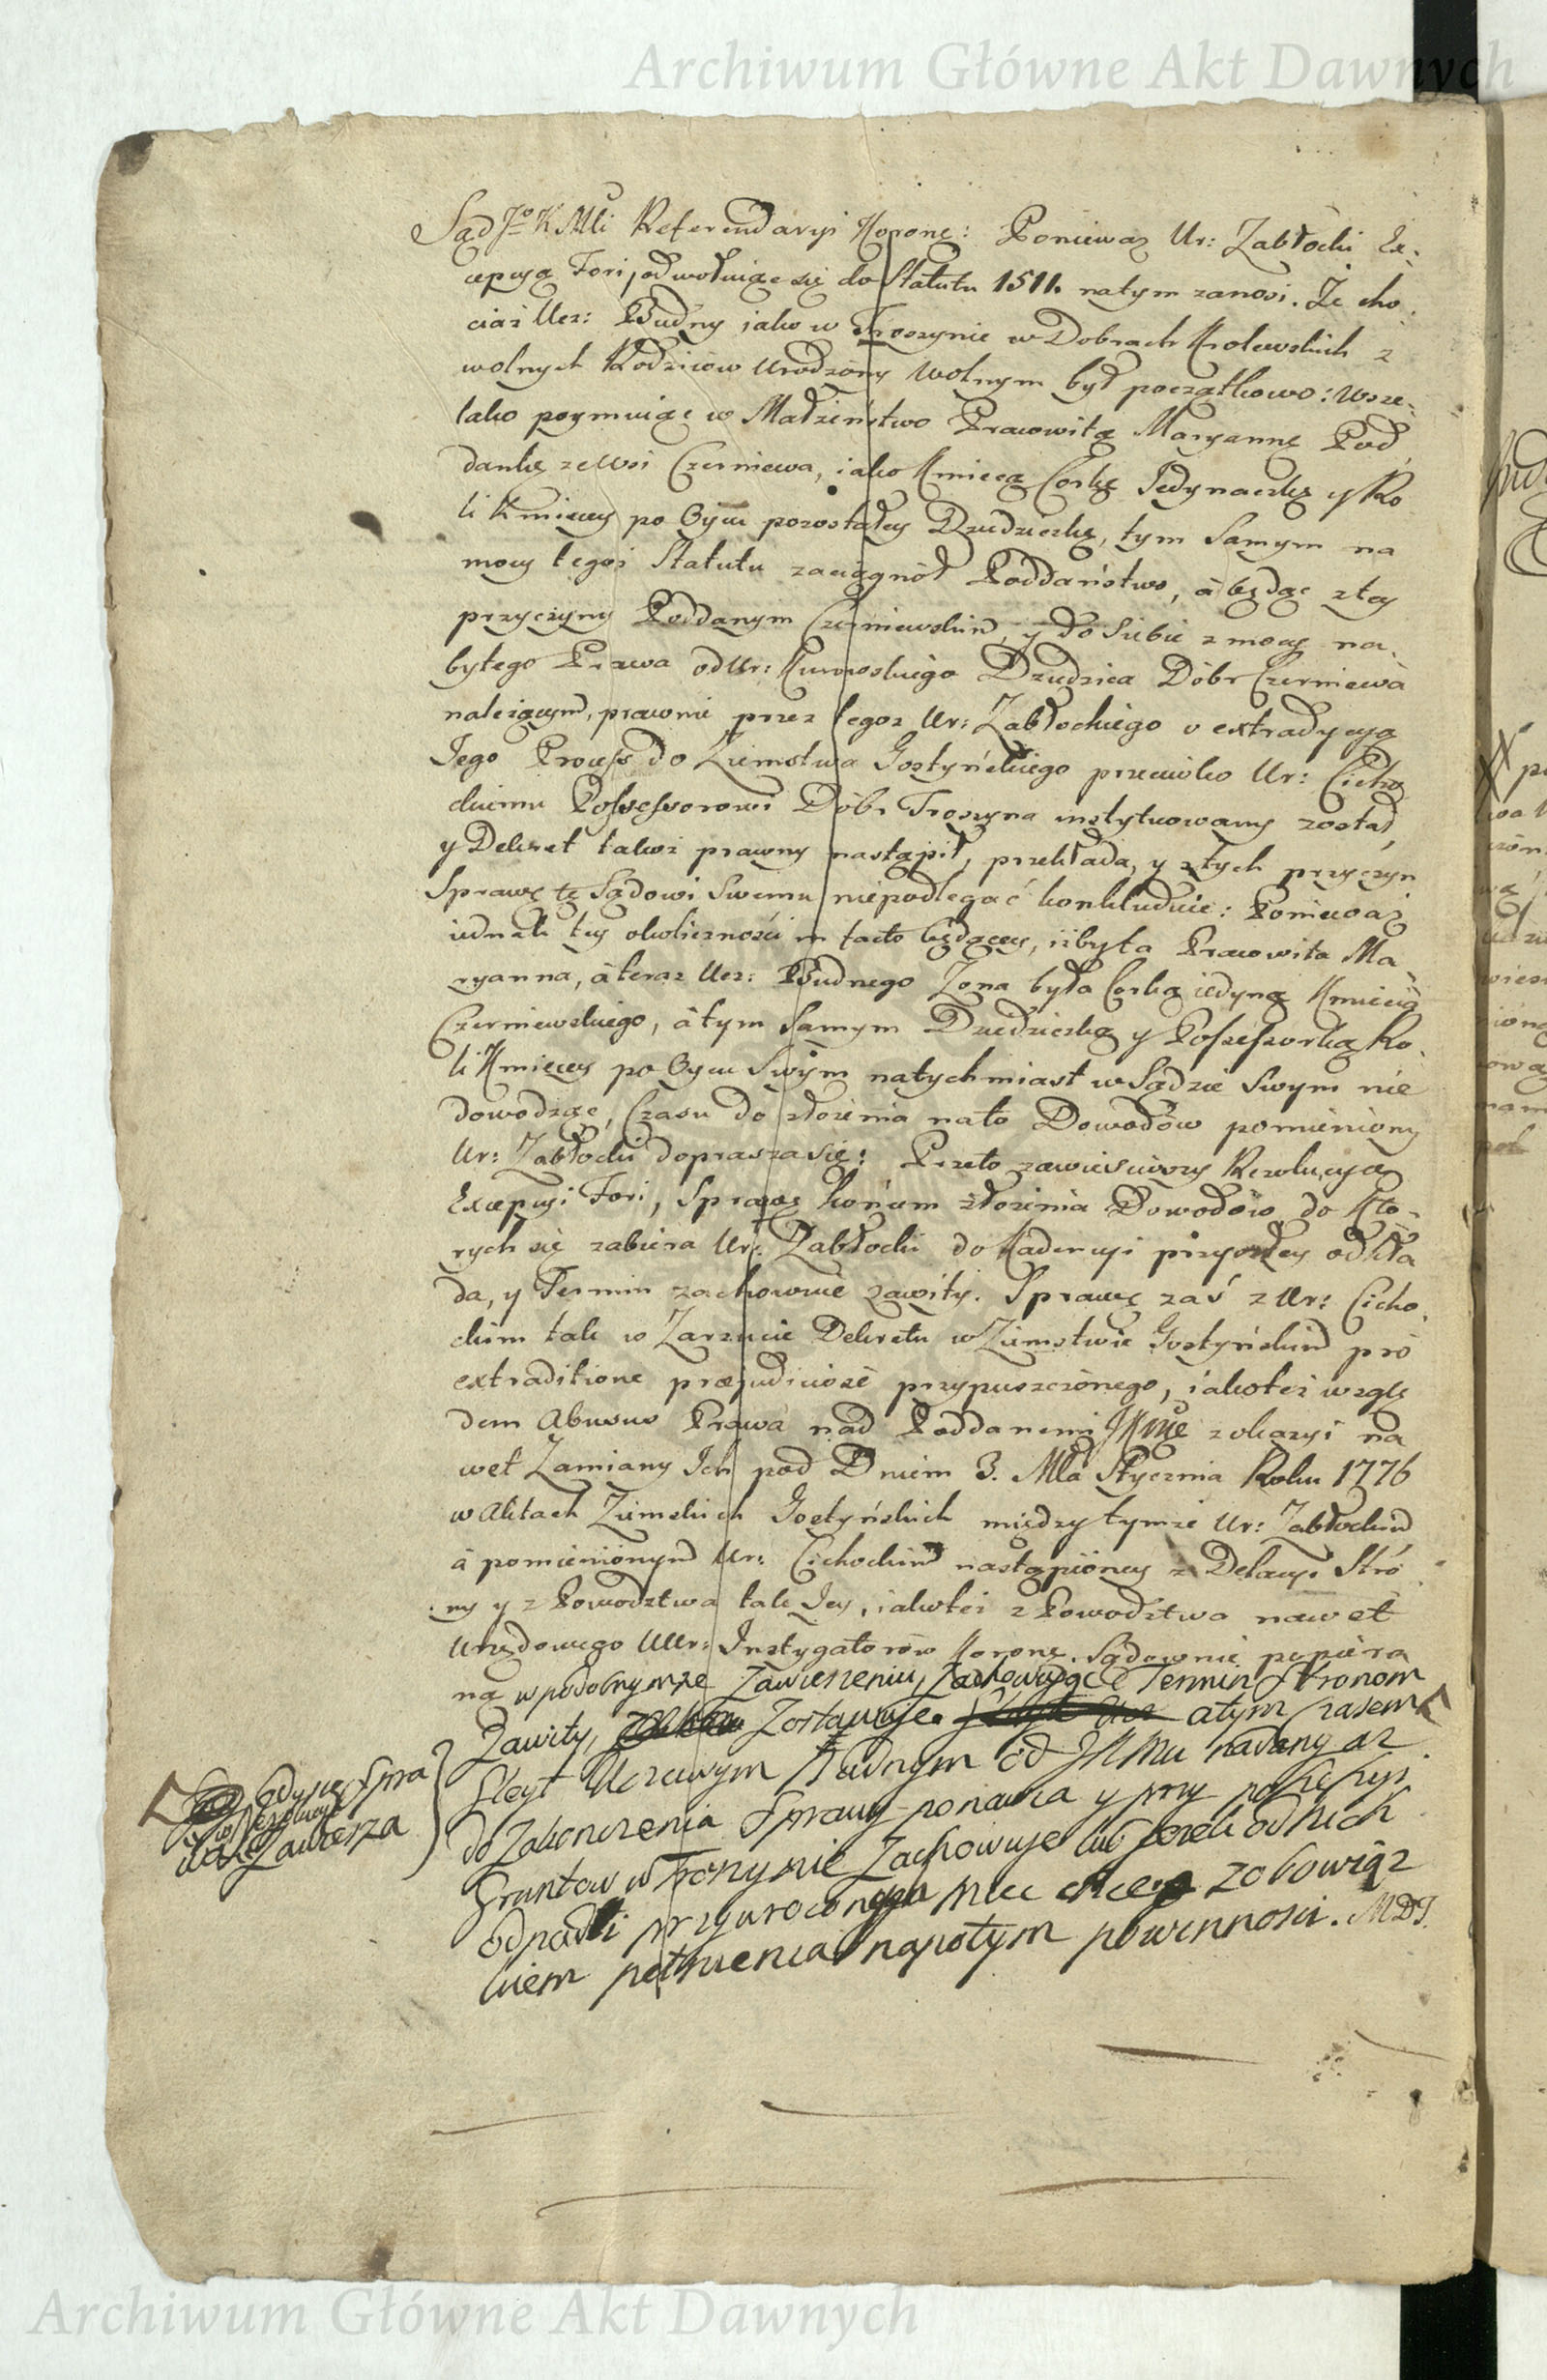 Archiwum Główne Akt Dawnych
Sąd Jo K Mći Referendaryi Koronę: Ponieważ Ur: Zabłocki Ex:
cepcyą Fori, odwołuiąc się do Statutu 1511. natym zanosi. Że cho,
ciaż Ucz: Budny iako w Troszynie w Dobrach Krolewskich z
wolnych Rodziców Urodzony Wolnym był początkowo: wsze,
lako poymuiąc w Małżeństwo Pracowitą Maryannę Pod,
dankę ze Wsi Czerniewa, iako Kmiecą Corkę Jedynaczkę y Ro
li Kmiecey po Oycu pozostałey Dziedziczkę, tym Samym na
mocy tegoż Statutu zaciągnół Poddaństwo, á będąc z tey
przyczyny Poddanym Czerniewskim, y do Siebie z mocy na,
bytego Prawa od Ur: Kurowskiego Dziedzica Dóbr Czerniewa
należącym, prawnie przez tegoż Ur: Zabłockiego o extradycyą
Jego Process do Ziemstwa Gostyńskiego przeciwko Ur: Cicho,
ckiemu Possessorowi Dóbr Troszyna instytuowany został,
y Dekret takoż prawny nastąpił, przekłada, y z tych przyczyn
Sprawę tę Sądowi Swemu niepodlegać konkluduie: Ponieważ
iednak tey okoliczności in facto będącey, iżby ta Pracowita Ma
ryanna, á teraz Ucz: Budnego Zona była Corką iedyną Kmiecia
Czerniewskiego, á tym Samym Dziedziczką y Possessorką Ro,
li Kmiecey po Oycu Swym natychmiast w Sądzie Swym nie
dowodząc, Czasu do złożenia nato Dowodów pomieniony
Ur: Zabłocki doprasza się: Przeto zawiesiwszy Rezolucyą
Excepcyi Fori, Sprawę końcem złożenia Dowodów, do Kto-
rych się zabiera Ur: Zabłocki do Kadencyi przyszłey odkła
da, y Termin zachowuie zawity. Sprawę zaś z Ur: Cicho,
ckim tak w Zarzucie Dekretu w Ziemstwie Gostyńskim pro
extraditione præjudiciosè przypuszczonego, iakoteż wzglę
dem Abusus Prawa nad Poddanemi JKMcę z okazyi na
wet Zamiany Ich pod Dniem 3. Mca Stycznia Roku 1776
w Aktach Ziemskich Gostyńskich między tymże Ur: Zabłockim
á pomienionym Ur: Cichockim nastąpioney z Delacyi Stro
ny y z Powodztwa tak Jey, iakoteż z Powodztwa nawet
Urzędowego UUr: Instygatorow Koronę. Sądownie popiera
ną w podobnymze Zawieszeniu, Zachowuiąc Termin Stronom
Zawity, Zostawuje. atym Czasem
Gdy się Spra
Rezolucyi
Zawiesza
Gleyt Uczciwym Budnym od JKMci nadany az
do Zakonczenia Sprawy ponawia y przy possessyi
Gruntow w Troszynie Zachowuje lub jezeli od nich
odpadli przywroconych miec chce z obowiąz
kiem pełnienia napotym powinnosci. MDJ.
Archiwum Główne Akt Dawnych